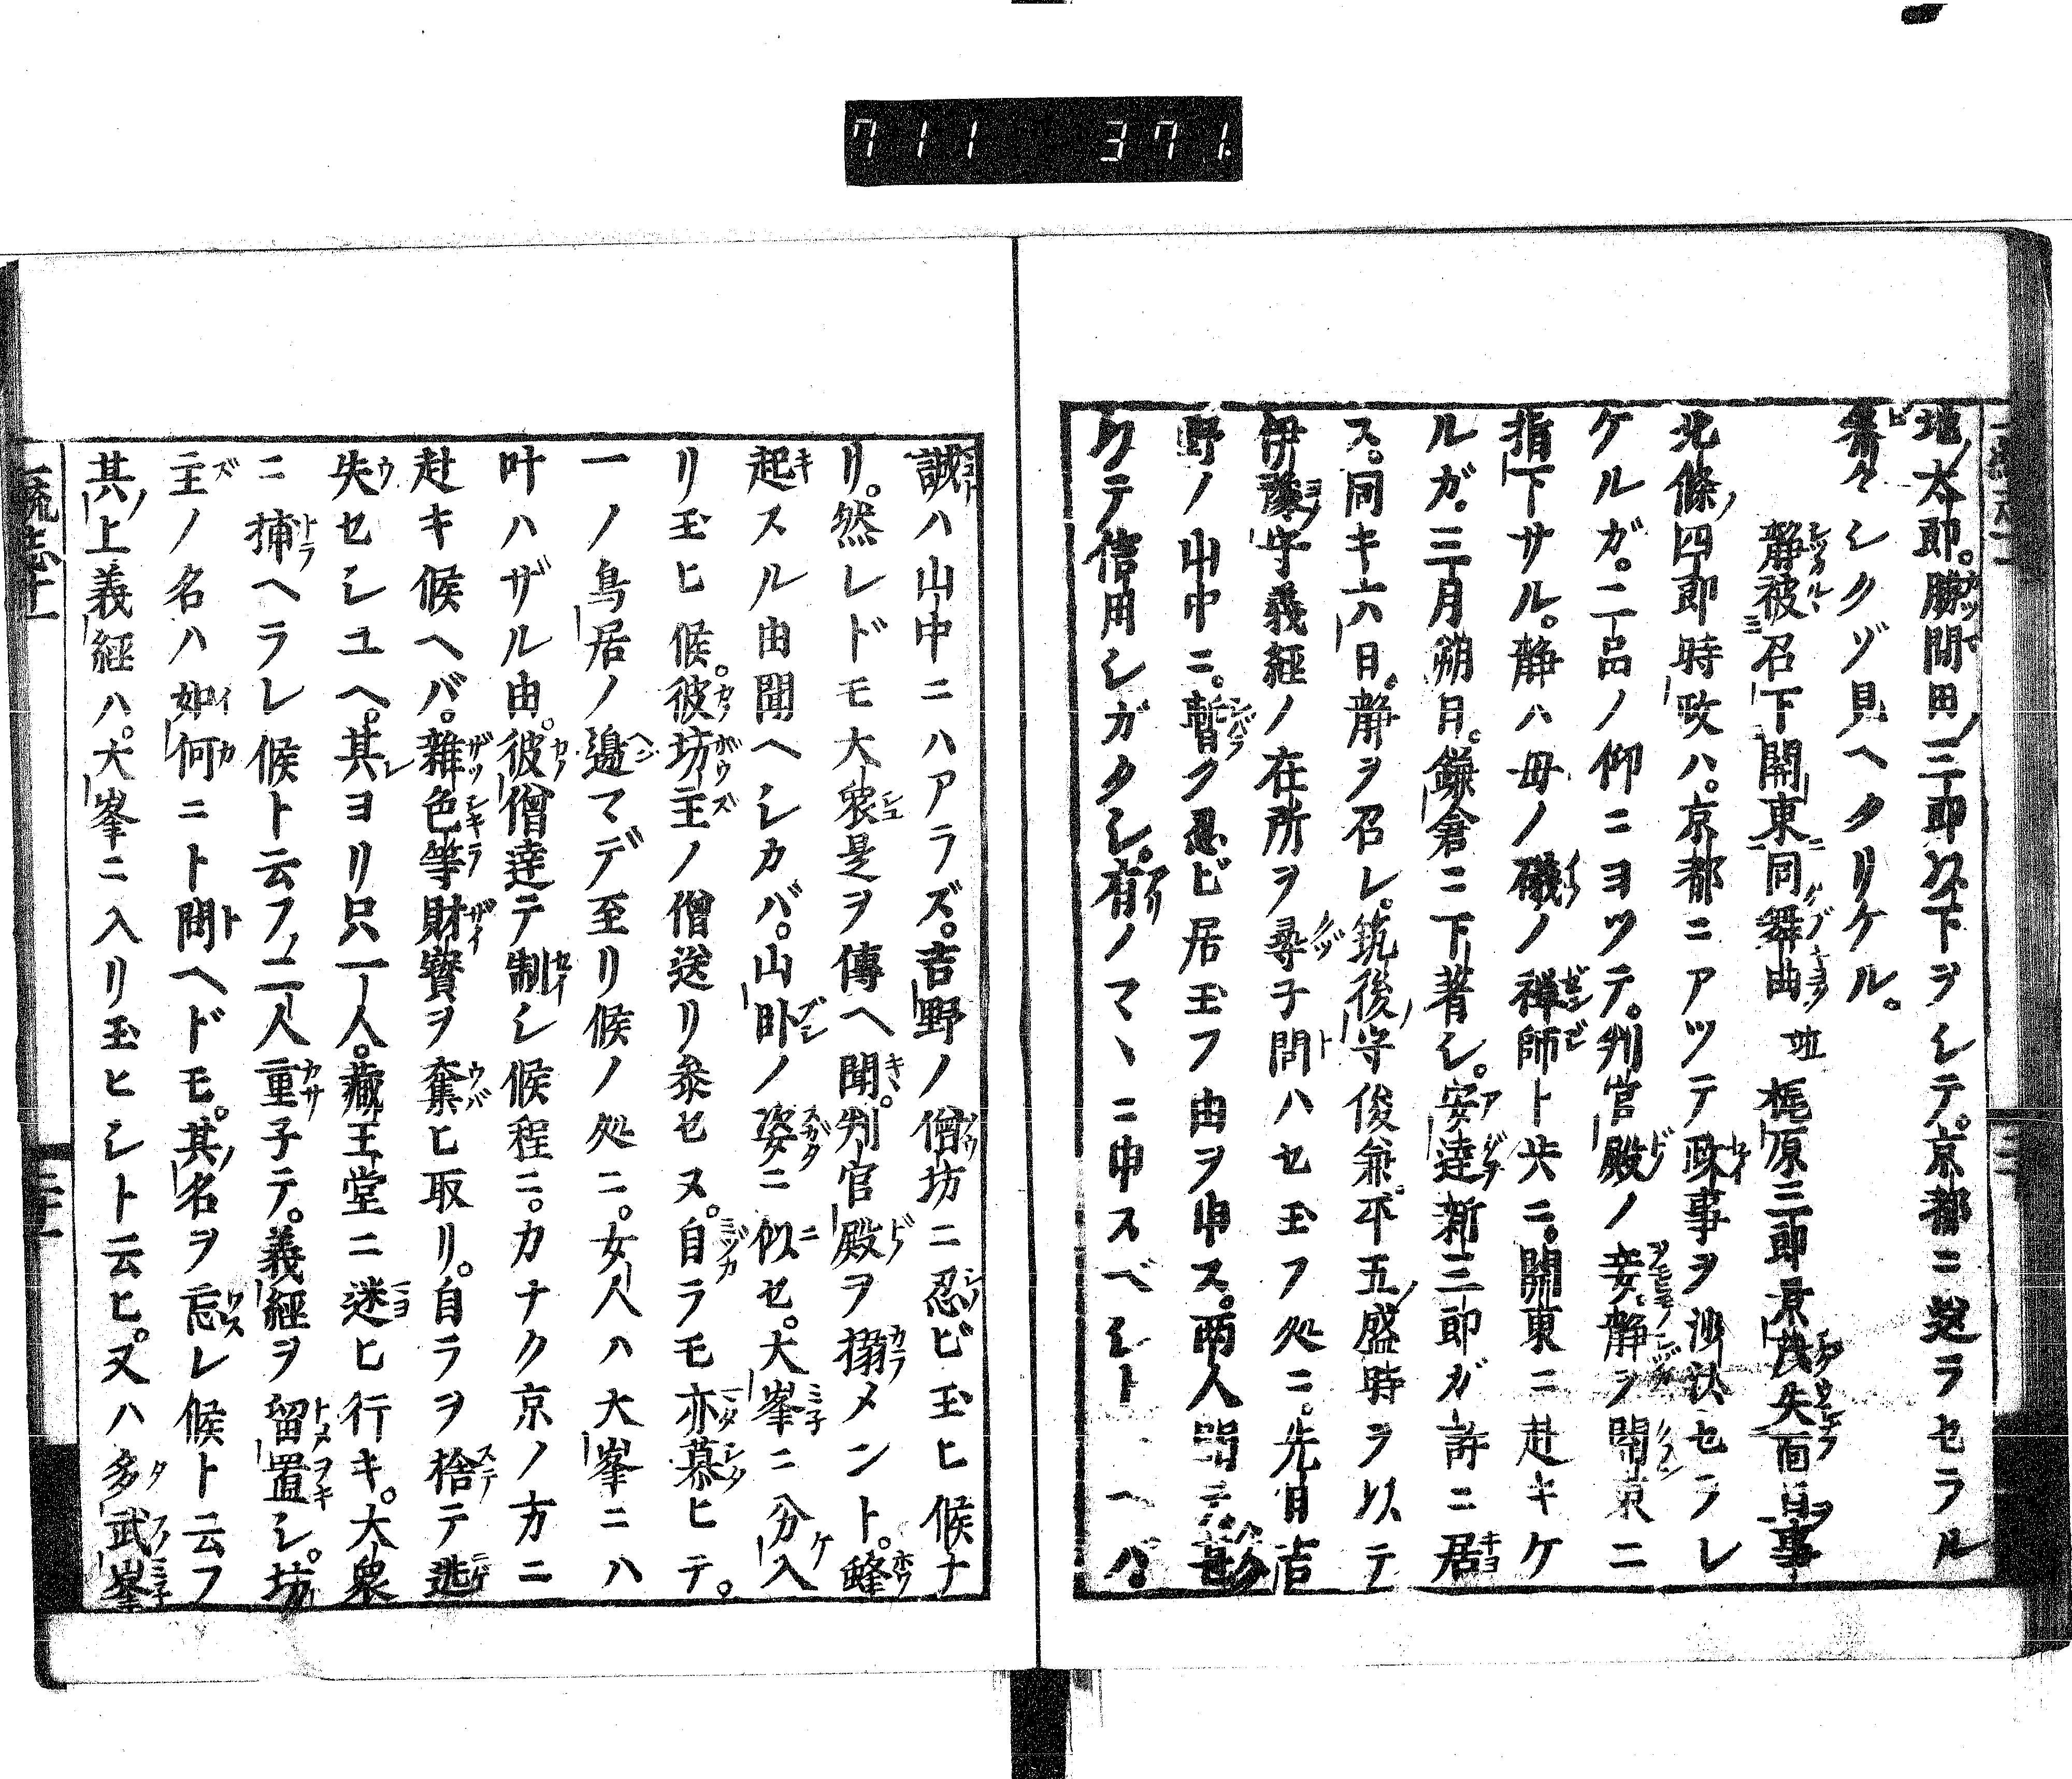 711 371.
地太郎。勝間田三郎久下ヲシテ。京都ニ送ラセラル
シクゾ見ヘタリケル。
静被召下関東同舞曲並梶原三郎景茂失面目事
北條四郎時政ハ。京都ニアツテ政事ヲ沙汰セラレ
ケルガ。二品ノ仰ニヨツテ。判官殿ノ妾静ヲ関東ニ
指下サル。静ハ母ノ磯ノ禅師ト共ニ。関東ニ赴キケ
ルガ。三月朔日。鎌倉ニ下著シ。安達新三郎ガ許ニ居
ス。同キ六日。静ヲ召レ。筑後守俊兼。平五盛時ヲ以テ
伊豫守義経ノ在所ヲ尋子問ハセ玉フ処ニ。先日吉
野ノ山中ニ。暫ク忍ビ居玉フ由ヲ申ス。両人聞テ
クテ信用シガタシ。有ノマヽニ申スベシト ヘバ。
誠ハ山中ニハアラズ。吉野ノ僧坊ニ忍ビ玉ヒ候ナ
リ。然レドモ大衆是ヲ傳ヘ聞。判官殿ヲ搦メント。蜂
起スル由聞ヘシカバ。山臥ノ姿ニ似セ。大峯ニ分入
リ玉ヒ候。彼坊主ノ僧送リ参セヌ。自ラモ亦慕ヒテ。
一ノ鳥居ノ邊マデ至リ候ノ処ニ。女人ハ大峯ニハ
叶ハザル由。彼僧達テ制シ候程ニ。カナク京ノ方ニ
赴キ候ヘバ。雜色等財寳ヲ奪ヒ取リ。自ラヲ捨テ逃
失セシユヘ。其ヨリ只一人。藏王堂ニ迷ヒ行キ。大衆
ニ捕ヘラレ候ト云フ。二人重子テ。義經ヲ留置シ。坊
主ノ名ハ如何ニト問ヘドモ。其名ヲ忘レ候ト云フ
其上義経ハ。大峯ニ入リ玉ヒシト云ヒ。又ハ多武峯